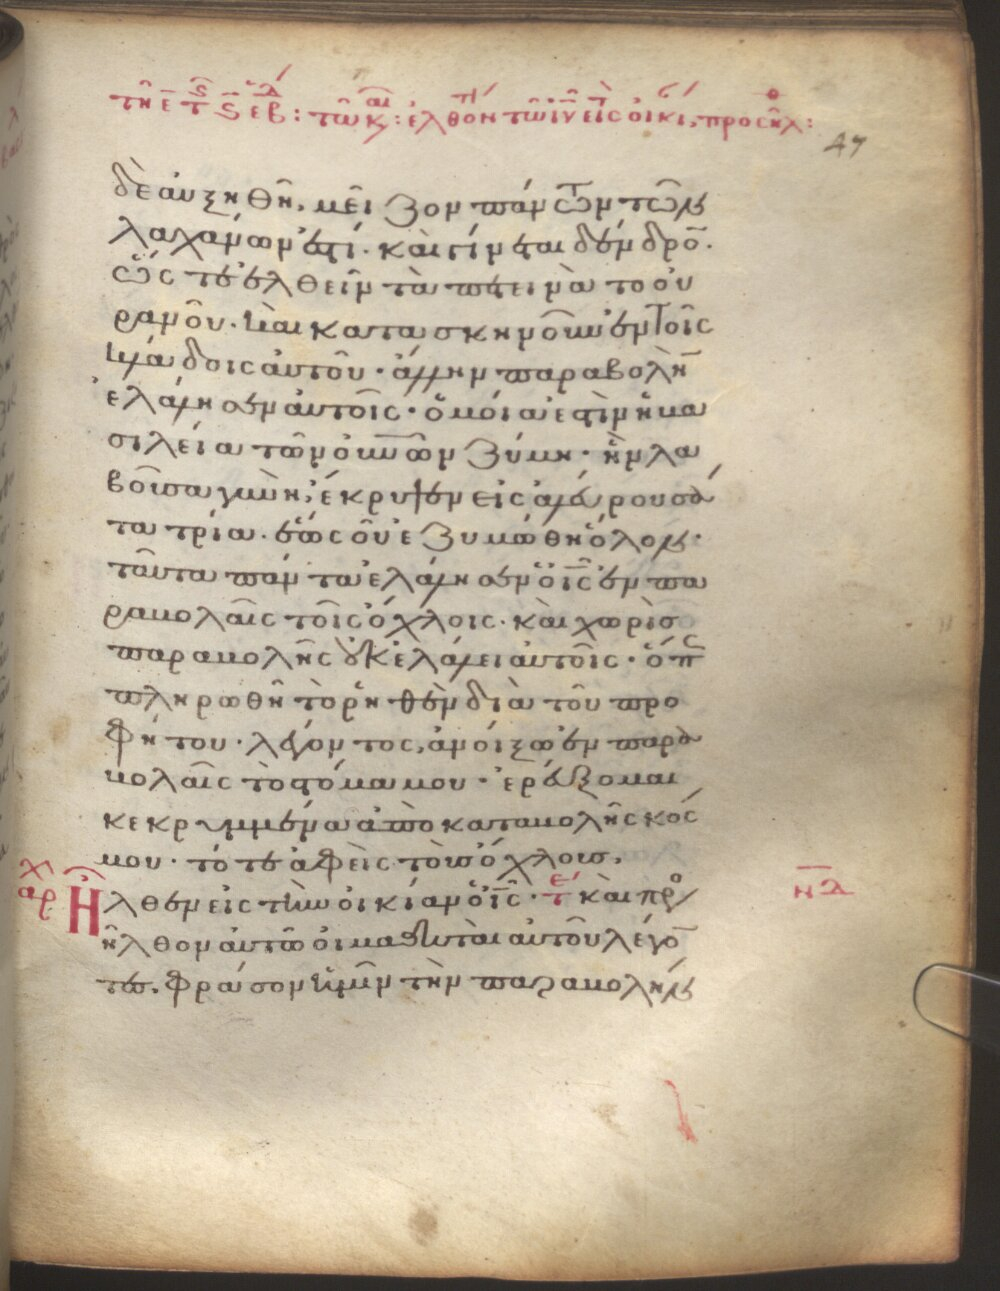 τῆ ε τ ς εβ: τῶ κ: ἐλθόν τῶ ιυ εἰς οἰκι, προσῆλ:
47
δὲ αὐξηθῆ, μεῖζον πάντων τῶν
λαχάνων ἐστί. καὶ γίνεται δένδρο̅.
ὥς τε ἐλθεῖν τὰ πετεινὰ το οὐ
ρανοῦ. καὶ κατασκηνοῦν ἐν τοῖς
κλάδοις αὐτοῦ. ἄλλην παραβολὴν
ἐλάλησεν αὐτοῖς. ὁμοία ἐστὶν ἡ βα
σιλεία τῶν οὐνῶν ζύμη. ἣν λα
βοῦσα γυνὴ, ἔκρυψεν εἰς ἀλεύρου σά
τα τρία. ἕως οὗ ἐζυμώθη ὅλον.
ταῦτα πάντα ἐλάλησεν ὁ ἰς ἐν πα
ραβολαῖς τοῖς ὄχλοις. καὶ χωρὶσ
παραβολῆς οὐκ ἐλάλει αὐτοῖς. ὅπς
πληρωθῆ τὸ ῥηθὲν διὰ τοῦ προ
φήτου. λέγοντος, ἀνοίξω ἐν παρα
βολαῖς τὸ στόμα μου. ἐρεύξομαι
κεκρυμμένα ἀπὸ καταβολῆς κόσ
μου. τότε ἀφεὶς τοὺσ ὄχλουσ,
χ
αρ
Ἦλθεν εἰς τὴν οἰκίαν ὁ ἰς. τ καὶ προ
νδ
ῆλθον αὐτῶ οἱ μαθηταὶ αὐτοῦ λέγο̅
τες. φράσον ἡμῖν τὴν παραβολὴν